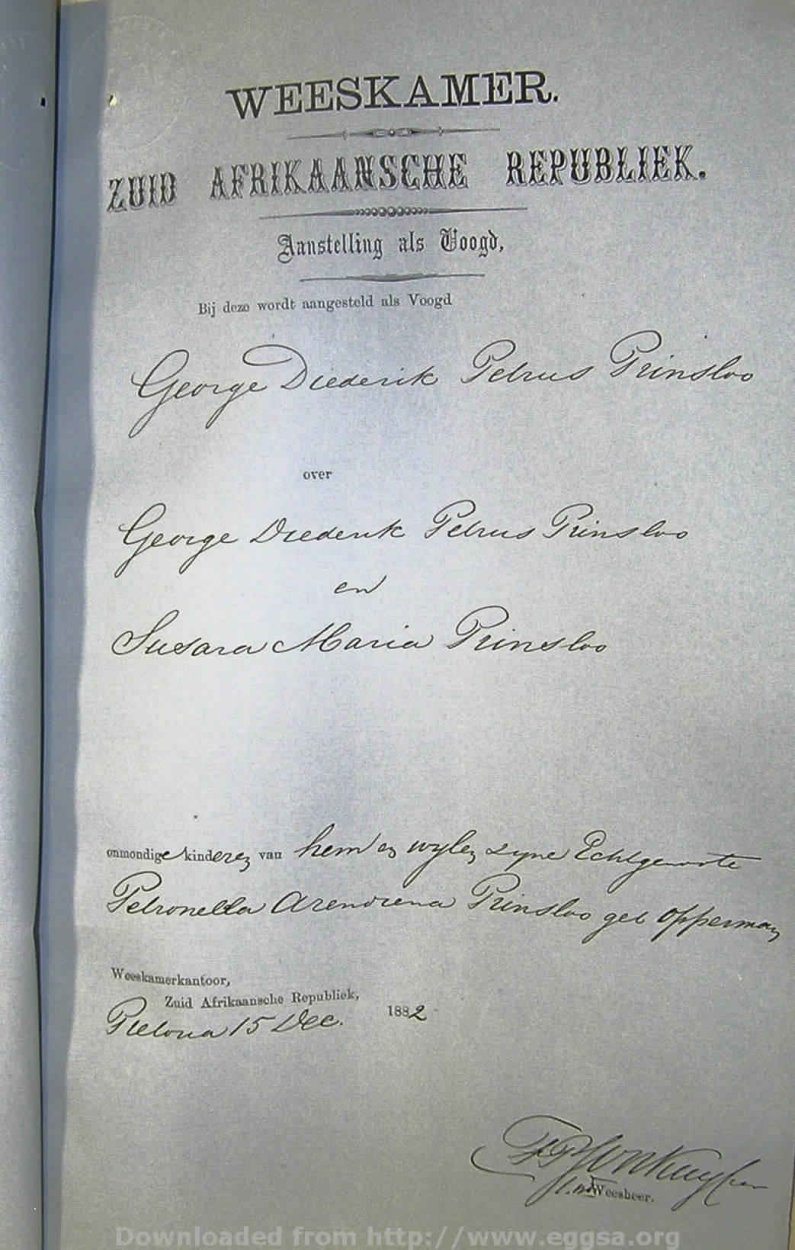 WEESKAMER.
ZUID AFRIKAANSCHE REPUBLIEK.
Aanstelling als Voogd,
Bij deze wordt aangesteld als Voogd
George Diederik Petrus Prinsloo
over
George Diederik Petrus Prinsloo
en
Susara Maria Prinsloo
onmondige kinderen van hem en wylen zyne Echtgenoote
Petronella Arendrena Prinsloo geb Opperman
Weeskamerkantoor,
Zuid Afrikaansche Republiek,
Pretoria 15 Dec. 1882
Weesheer.
Downloaded from http://www.eggsa.org